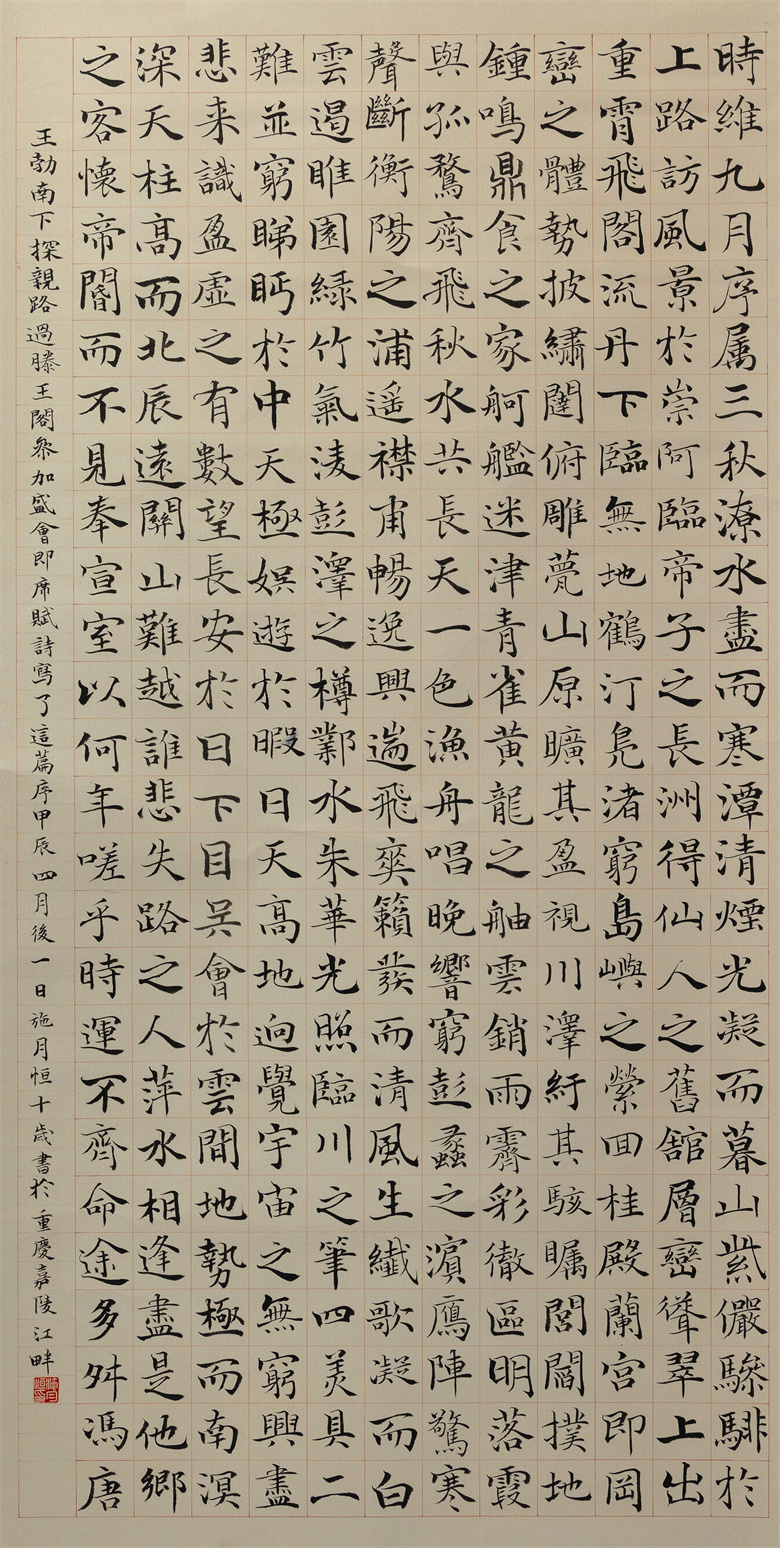 時維九月序属三秋潦水盡而寒潭清煙光凝而暮山紫儼驂騑於
上路訪風景於崇阿臨帝子之長洲得仙人之舊舘層巒聳翠上出
重霄飛閣流丹下臨無地鶴汀凫渚窮島嶼之縈回桂殿蘭宮即岡
巒之體勢披繡闥俯雕甍山原曠其盈視川澤紆其駭矚閭閻撲地
鍾鳴鼎食之家舸艦迷津青雀黃龍之舳雲銷雨霽彩徹區明落霞
與孤鶩齊飛秋水共長天一色漁舟唱晚響窮彭蠡之濱鴈陣驚寒
聲斷衡陽之浦遥襟甫暢逸興遄飛爽籟發而清風生纖歌凝而白
雲遏睢園緑竹氣淩彭澤之樽鄴水朱華光照臨川之筆四美具二
難並窮睇眄於中天極娯遊於暇日天高地迥覺宇宙之無窮興盡
悲来識盈虛之有數望長安於日下目吴會於雲間地勢極而南溟
深天柱高而北辰遠關山難越誰悲失路之人萍水相逢盡是他鄉
之客懷帝閽而不見奉宣室以何年嗟乎時運不齊命途多舛馮唐
王勃南下探親路過滕王閣參加盛會即席賦詩寫了這篇序甲辰四月後一日施月恒十歲書於重慶嘉陵江畔